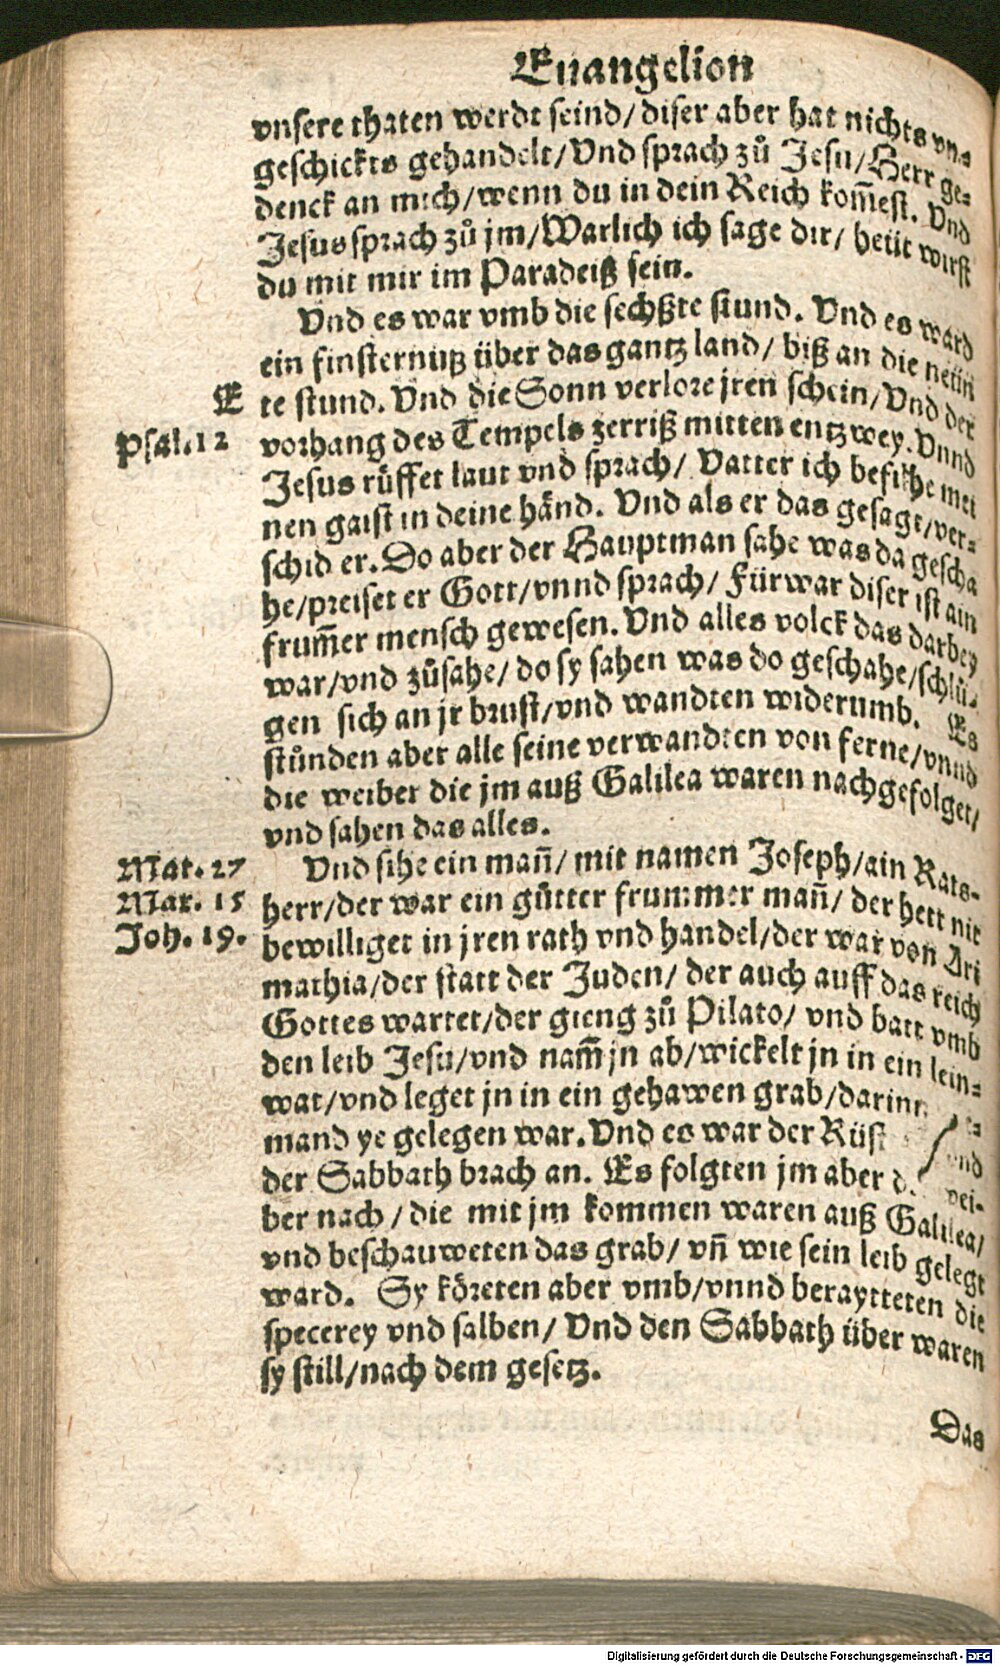 Euangelion
vnsere thaten werdt seind/diser aber hat nichts vn⸗
geschickts gehandelt/Vnd sprach zů Jesu/Herr ge⸗
denck an mich/wenn du in dein Reich kom̃est. Vnd
Jesus sprach zů jm/Warlich ich sage dir/ heüt wirst
du mit mir im Paradeiß sein.
Vnd es war vmb die sechßte stund. Vnd es ward
ein finsternutz über das gantz land/ biß an die neün
E
te stund. Vnd die Sonn verlore jren schein/Vnd der
Psal.12
vorhang des Tempels zerriß mitten entzwey. Vnnd
Jesus rüffet laut vnd sprach/ Vatter ich befilhe mei
nen gaist in deine hånd. Vnd als er das gesagt/ver⸗
schid er. Do aber der Hauptman sahe was da gescha
he/preiset er Gott/vnnd sprach/ Fürwar diser ist ain
frum̃er mensch gewesen. Vnd alles volck das darbey
war/vnd zůsahe/ do sy sahen was do geschahe/schlů⸗
gen sich an jr brust/vnd wandten widerumb. Es
stůnden aber alle seine verwandten von ferne/vnnd
die weiber die jm auß Galilea waren nachgefolget/
vnd sahen das alles.
Mat. 27
Vnd sihe ein mañ/ mit namen Joseph/ain Rats⸗
Mar. 15
herr/der war ein gůtter frummer mañ/ der hett nit
Joh. 19.
bewilliget in jren rath vnd handel/der war von Ari
mathia/der statt der Juden/ der auch auff das reich
Gottes wartet/der gieng zů Pilato/ vnd batt vmb
den leib Jesu/vnd nam̃ jn ab/wickelt jn in ein lein⸗
wat/vnd leget jn in ein gehawen grab/darinn
mand ye gelegen war. Vnd es war der Rüst vnd
der Sabbath brach an. Es folgten jm aber wei⸗
ber nach/die mit jm kommen waren auß Galilea/
vnd beschauweten das grab/ vñ wie sein leib gelegt
ward. Sy kőreten aber vmb/vnnd beraytteten die
specerey vnd salben/ Vnd den Sabbath über waren
sy still/nach dem gesetz.
Das
Digitalisierung gefördert durch die Deutsche Forschungsgemeinschaft - DFG